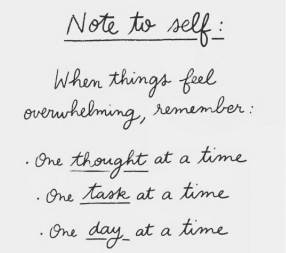 Note to self:
When things feel
overwhelming, remember:
· One thought at a time
· One task at a time
· One day at a time